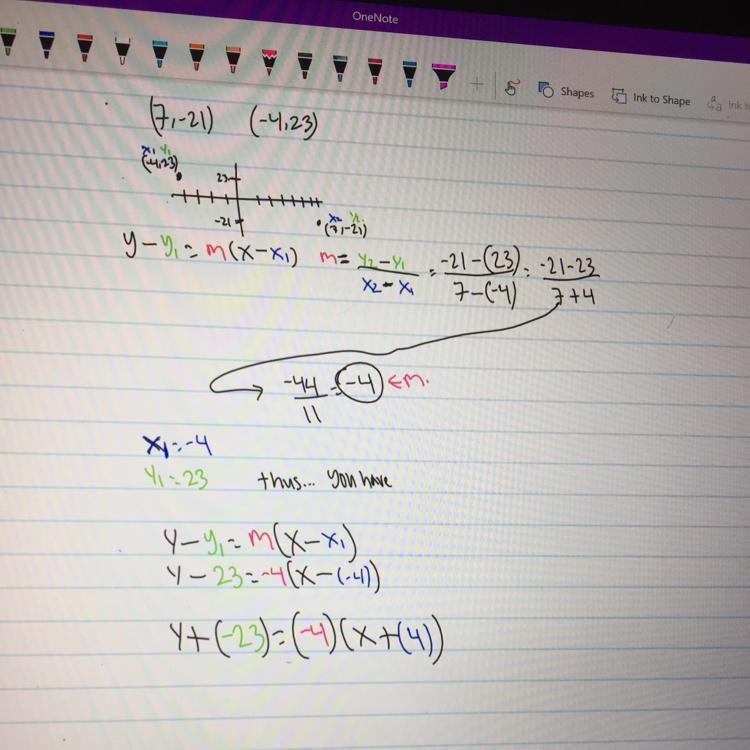 OneNote
Shapes
Ink to Shape
Ink to
(7,-21) (-4,23)
x₁ y₁
(-4,23)
23
-21
x₂ y₂
(7,-21)
y-y₁=m(x-x₁) m= y₂-y₁/x₂-x₁ = -21-(23)/7-(-4) = -21-23/7+4
-44/11 = -4 ← m.
x₁=-4
y₁=23 thus... you have
y-y₁=m(x-x₁)
y-23=-4(x-(-4))
y+(-23)=(-4)(x+(4))